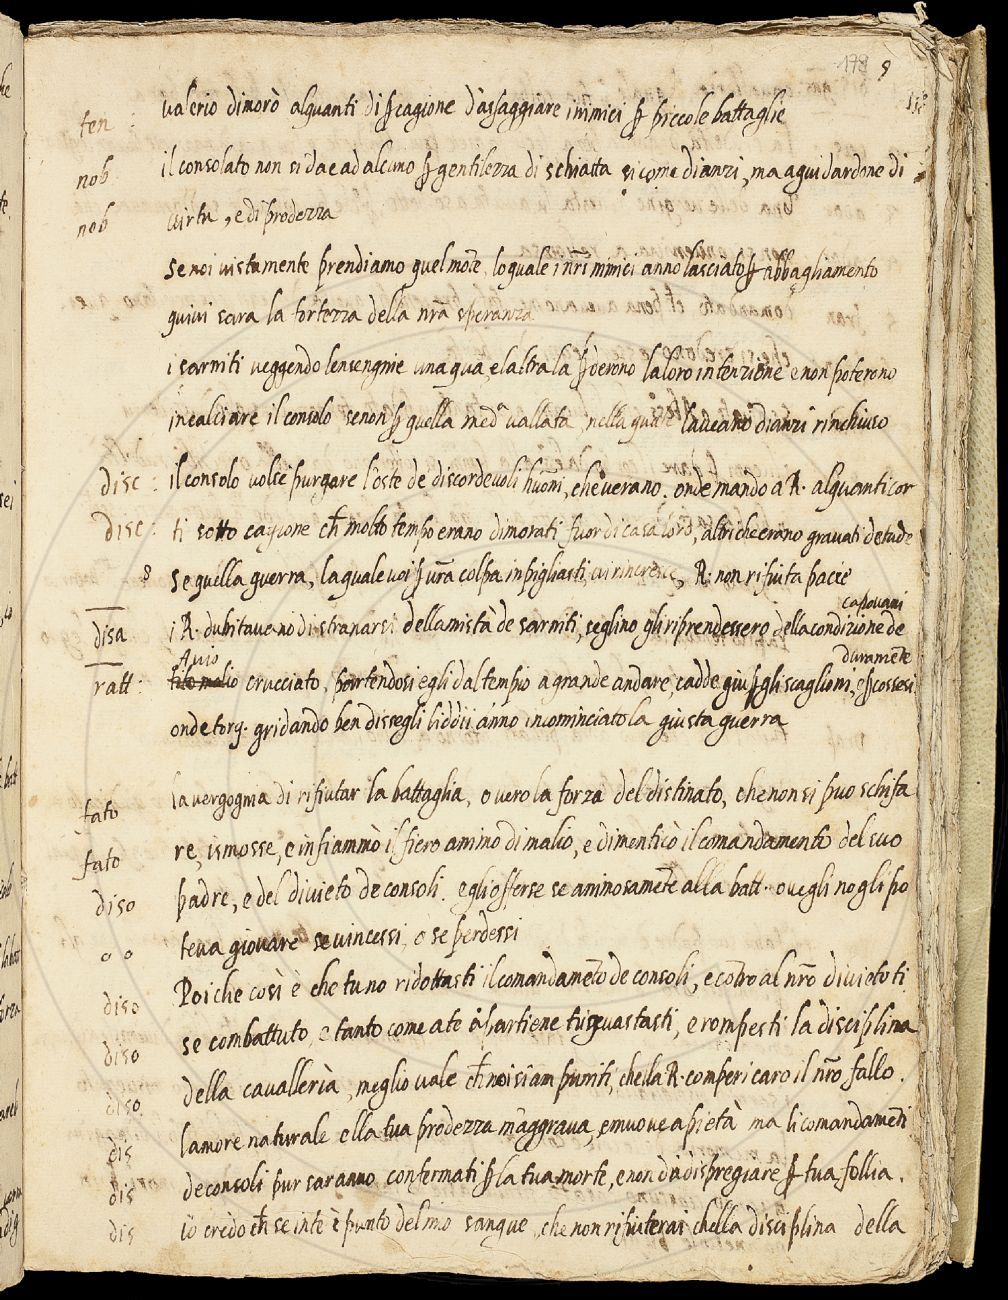 178 9
ten : valerio dimorò alquanti dì ꝑ cagione d'assaggiare inimici ꝑ piccole battaglie
nob il consolato non si da e ad alcuno ꝑ gentilezza di schiatta si come dianzi, ma a guidardone di
nob virtu, e di prodezza
se noi vistamente prendiamo quel mote, lo quale i nr̄i nimici anno lasciato ꝑ abbagliamento
quivi sara la fortezza della nr̄a speranza
i sanniti veggendo lensengnie una qua, e laltra la ꝑderono la loro intenzione e non poterono
incalciare il consolo senon ꝑ quella medᵃ vallata, nella quale laveano dianzi rinchiuso
disc : il consolo volse purgare l'oste de discordevoli huōni, che verano. onde mando a R. alquanti cor
disc : ti sotto cagione ch̄ molto tempo erano dimorati fuor di casa loro, altri che erano gravati detade
se quella guerra, la quale voi ꝑ vr̄a colpa inpigliasti, vi rincresce, R. non rifiuta pacie
capovani
disa i R. dubitavano di stranarsi dellamistà de sanniti, seglino gli riprendessero della condizione de
Anio duramēte
ratt : tito malio crucciato, partendosi egli dal tempio a grande andare, cadde giu ꝑ gli scaglioni, e ꝑcossesi
onde torq. gridando ben dissegli liddii anno incominciato la giusta guerra
fato la vergogna di rifiutar la battaglia, o vero la forza del distinato, che non si puo schifa
fato re, ismosse, e infiammò il fiero animo di malio, e dimenticò il comandamento del suo
diso padre, e del divieto de consoli. egli offerse se aninosamēte alla batt. ove gli no gli po
o o teva giovare se vincessi, o se perdessi
diso Poi che così è che tu no ridottasti il comandamēto de consoli, e cōtro al nr̄o divieto ti
diso se combattuto, e tanto come a te apartiene tu guastasti, e rompesti la disciplina
diso della cavalleria, meglio vale ch̄ noi siam puniti, che la R. comperi caro il nr̄o fallo.
dis lamore naturale e lla tua prodezza m'aggrava, e muove a pietà ma li comandamēti
dis de consoli pur saranno confermati ꝑ la tua morte, e non da dispregiare ꝑ tua follia.
dis io credo ch̄ se inte è punto del mio sangue, che non rifiuterai chella disciplina della